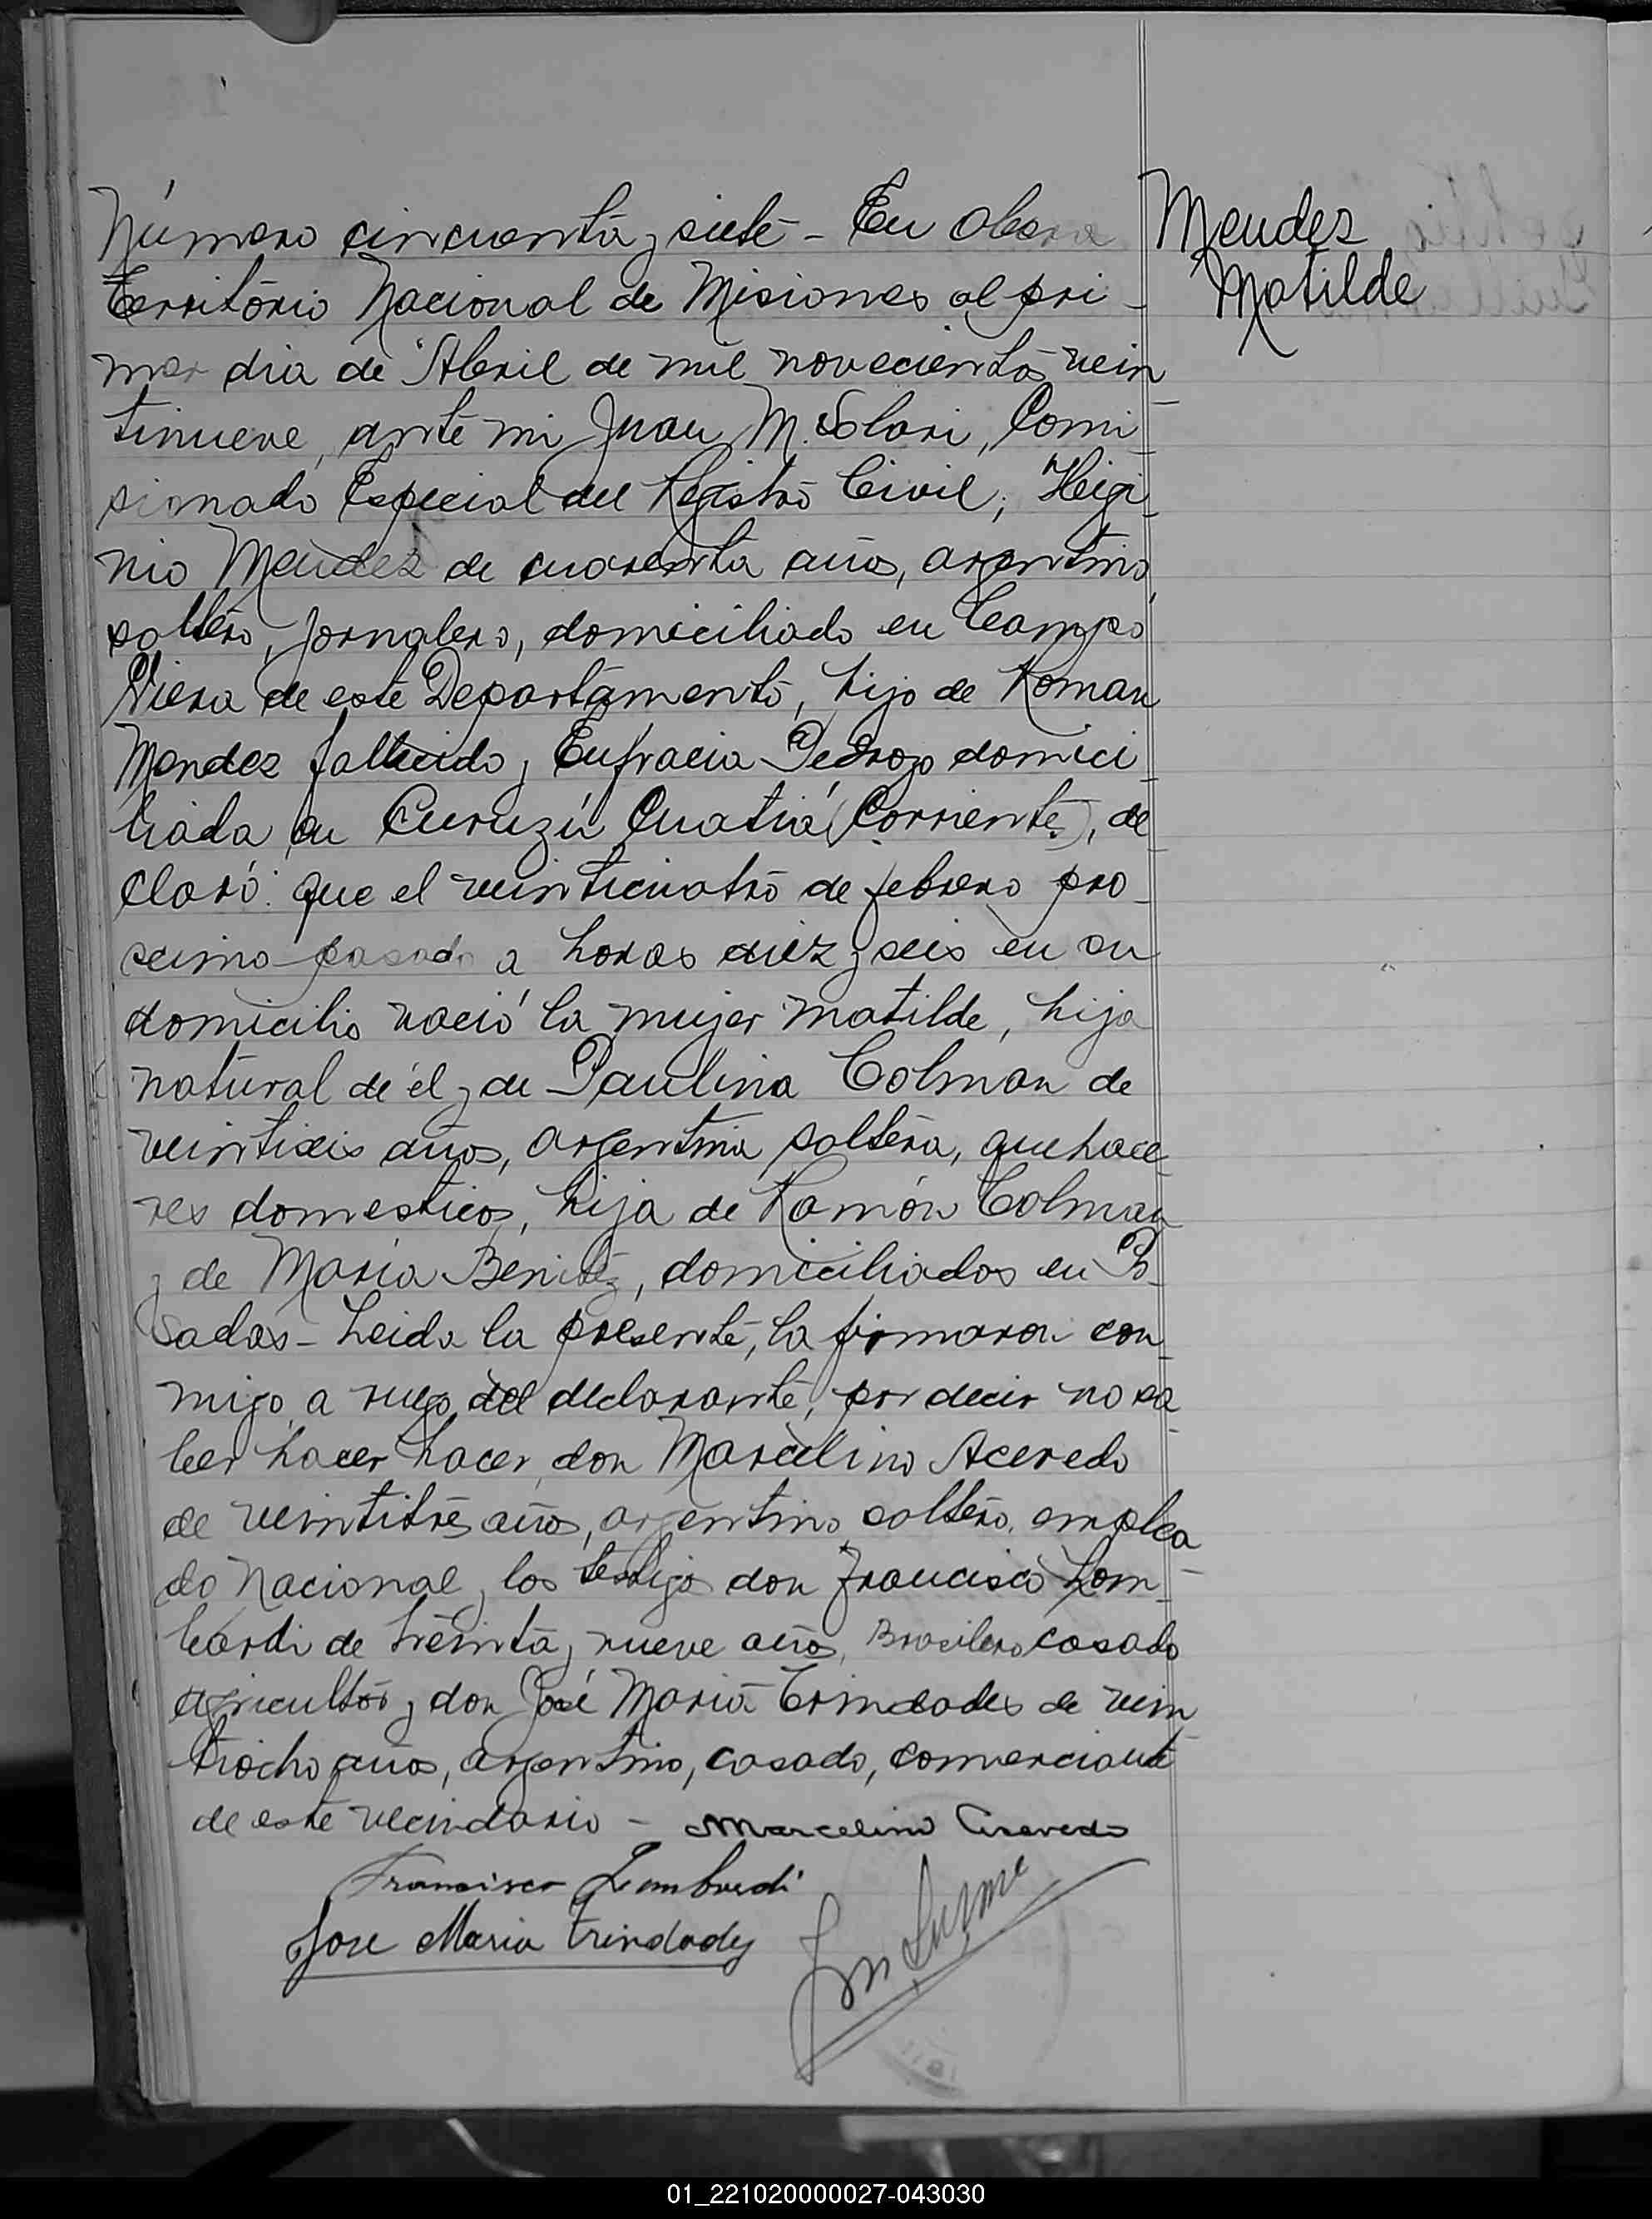 Número cincuenta y siete - En Obera
Mendez
Matilde
Território Nacional de Misiones al pri-
mer dia de Abril de mil novecientos vein-
tinueve, ante mi Juan M. Solari, Comi-
sionado Especial del Registro Civil; Higi-
nio Mendez de cuarenta años, argentino,
soltero, jornalero, domiciliado en Campo
Viera de este Departamento, hijo de Roman
Mendez fallecido y Eufracia Pedrozo domici-
liada en Curuzú Cuatiá (Corrientes), de-
claró: que el veinticuatro de febrero pro-
scimo pasado a horas diez y seis en su
domicilio nació la mujer Matilde, hija
natural de él y de Paulina Colman de
veintiseis años, argentina soltera, quehace-
res domesticos, hija de Ramón Colman
y de Maria Benitez, domiciliados en Po-
sadas - Leida la presente, la firmaron con-
migo a ruego del declarante, por decir no sa-
ber hacer hacer, don Marcelino Acevedo
de veintitres años, argentino soltero, emplea-
do Nacional y los testigos don Francisco Lom-
bardi de treinta y nueve años, Brasilero casado
agricultor y don José Maria Trindades de vein-
tiocho años, argentino, casado, comerciante
de este vecindario - Marcelino Acevedo
Francisco Lombardi
Jose Maria Trindades
01_221020000027-043030